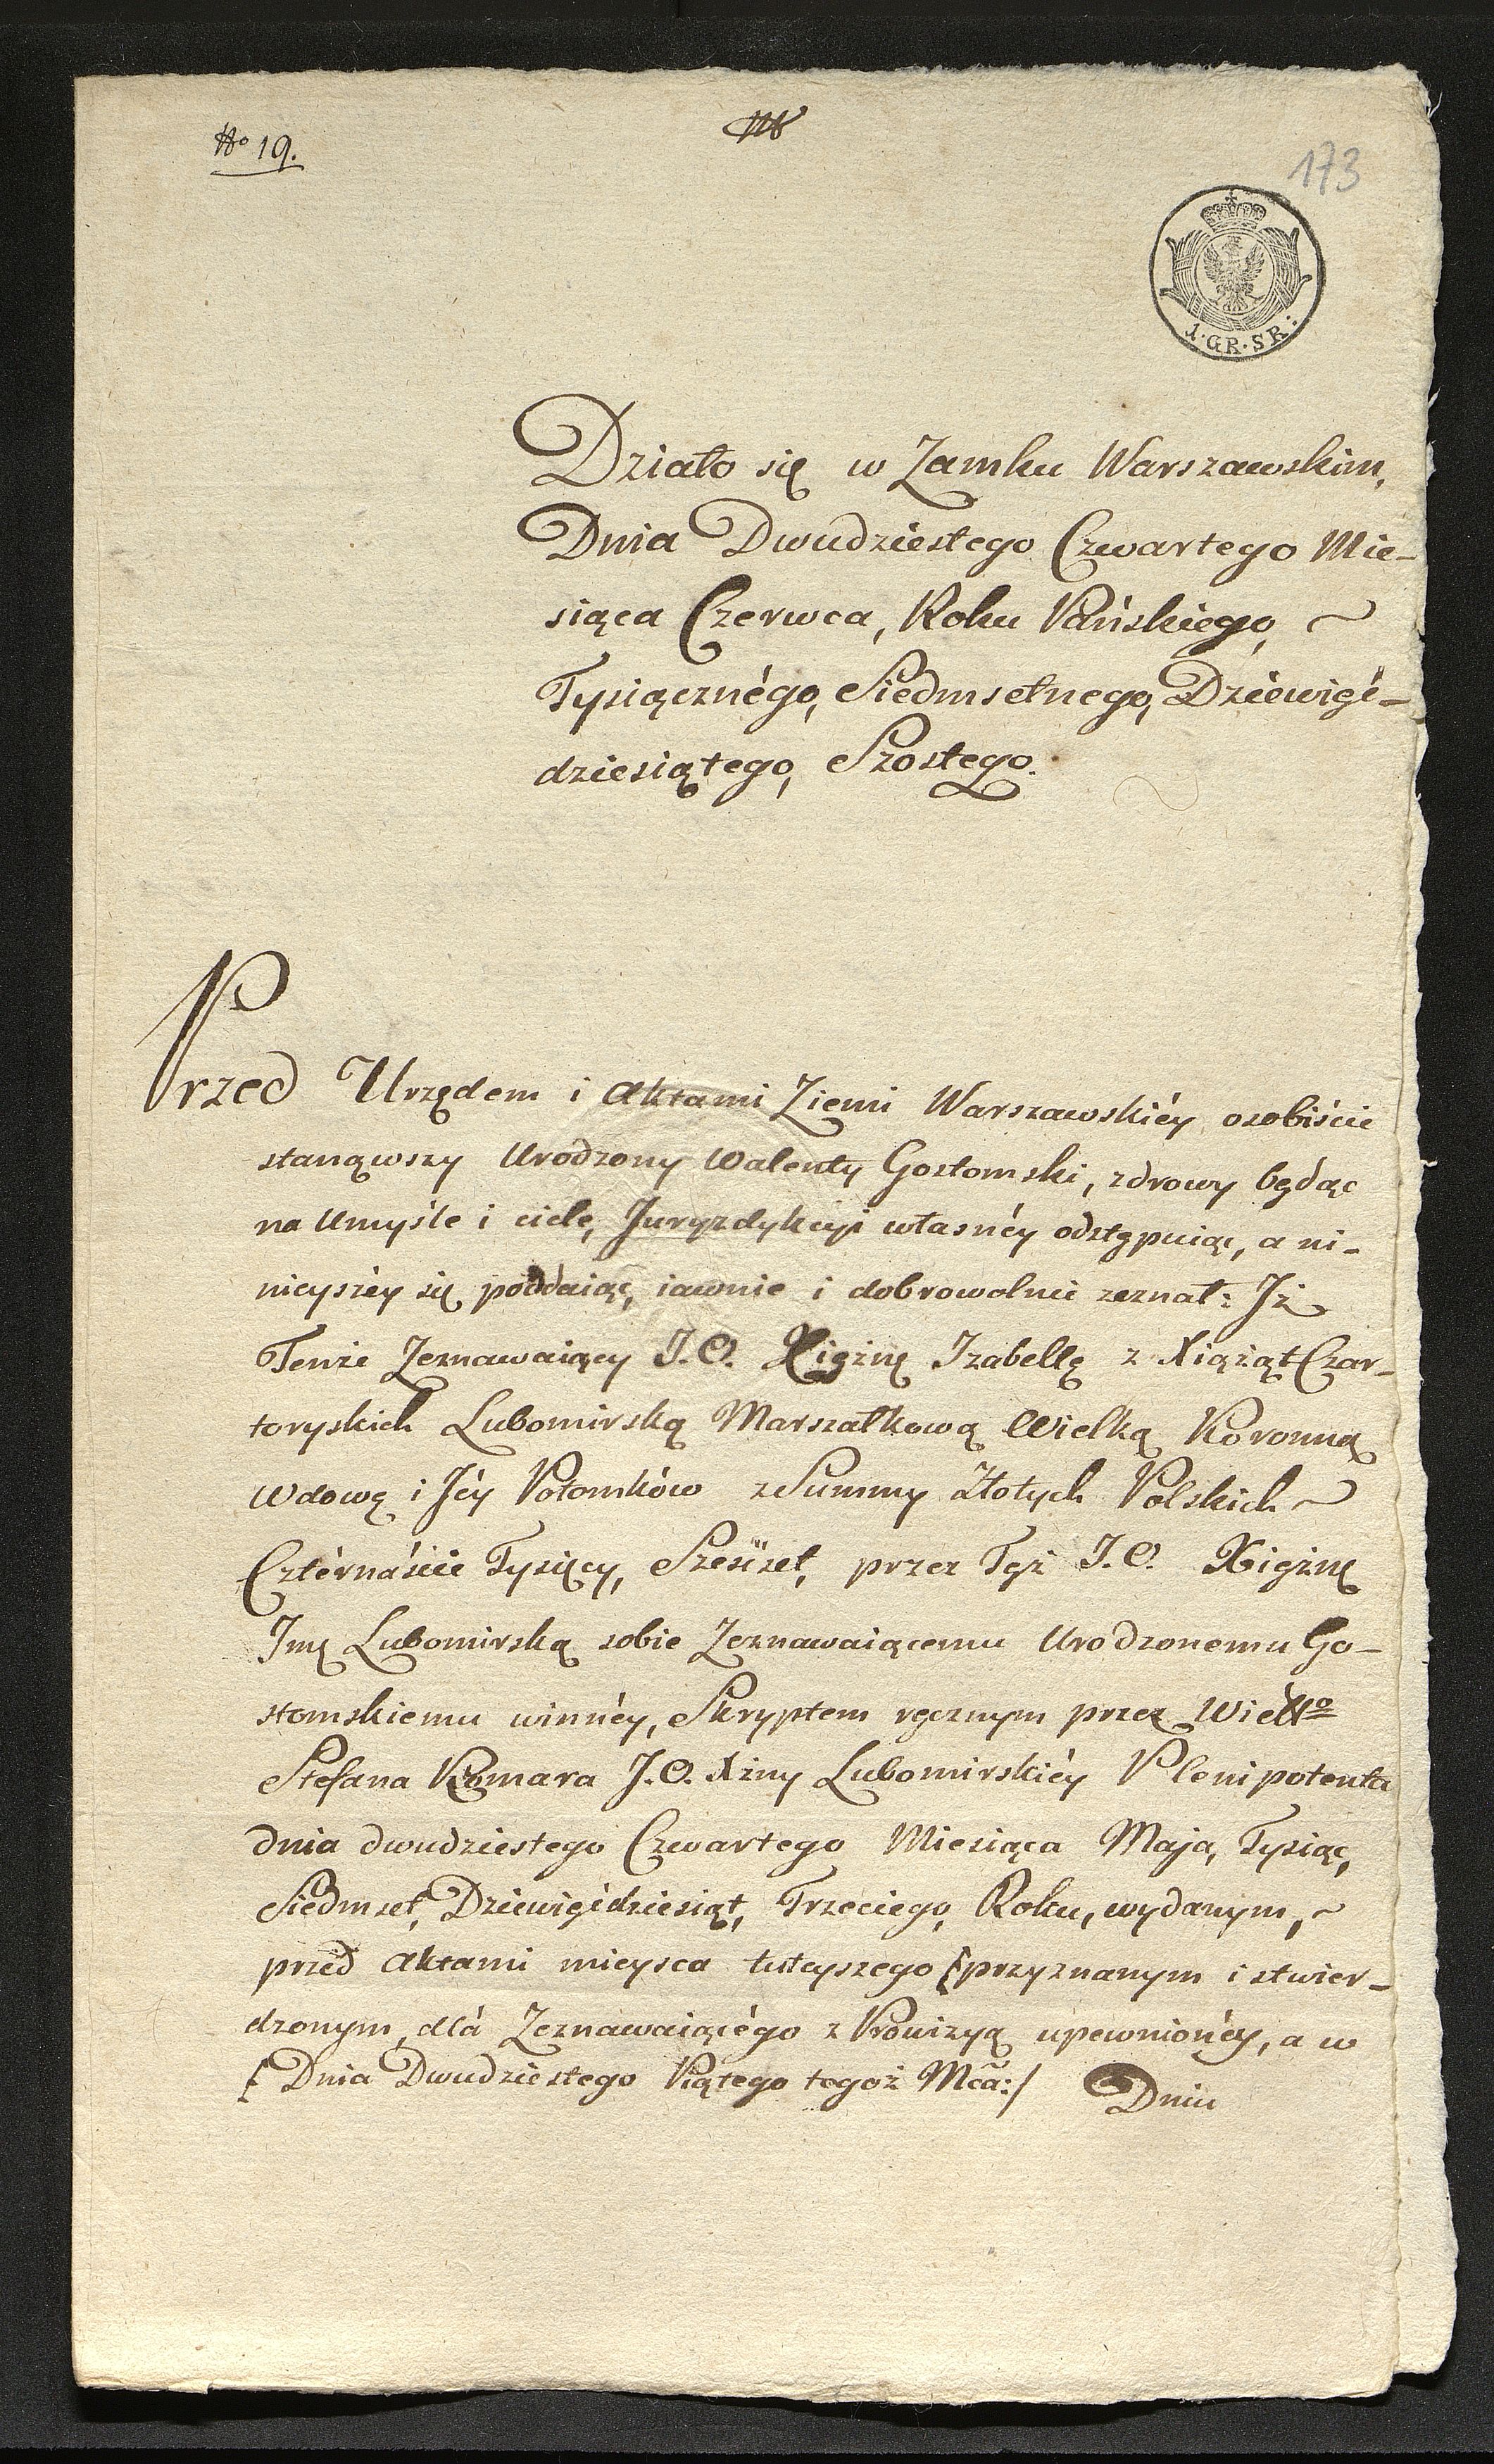 No 19.
173
1·GR·SR:
Działo się w Zamku Warszawskim,
Dnia Dwudziestego Czwartego Mie-
siąca Czerwca, Roku Pańskiego, ~
Tysiącznégo, Siedmsetnego, Dziewięć-
dziesiątego, Szostego.
Przed Urzędem i Aktami Ziemi Warszawskiéy osobiście
stanąwszy Urodzony Walenty Gostomski, zdrowy będąc
na Umyśle i ciele, Juryzdykcyi własnéy odstępuiąc, a ni-
nieyszéy się poddaiąc, iawnie i dobrowolnie zeznał: Jż
Tenże Zeznawaiący J.O. Xiężnę Izabellę z Xiążąt Czar-
toryskich Lubomirską Marszałkową Wielką Koronną
Wdowę i Jéy Potomków z Summy Złotych Polskich ~
Cztérnaście Tysięcy, Sześćset, przez Tęż J.O. Xiężnę
Jmę Lubomirską sobie Zeznawaiącemu Urodzonemu Go-
stomskiemu winnéy, Skryptem ręcznym przez Wiello
Stefana Komara J.O. Xżny Lubomirskiéy Plenipotenta
dnia dwudziestego Czwartego Miesiąca Maja, Tysiąc,
Siedmset, Dziewięćdziesiąt, Trzeciego, Roku, wydanym, ~
przed Aktami mieysca tuteyszego [przyznanym i stwier-
dzonym, dla Zeznawaiącégo z Prowizyą upewnionéy, a w
[ Dnia Dwudziestego Piątego tegoż Mca:/ Dniu